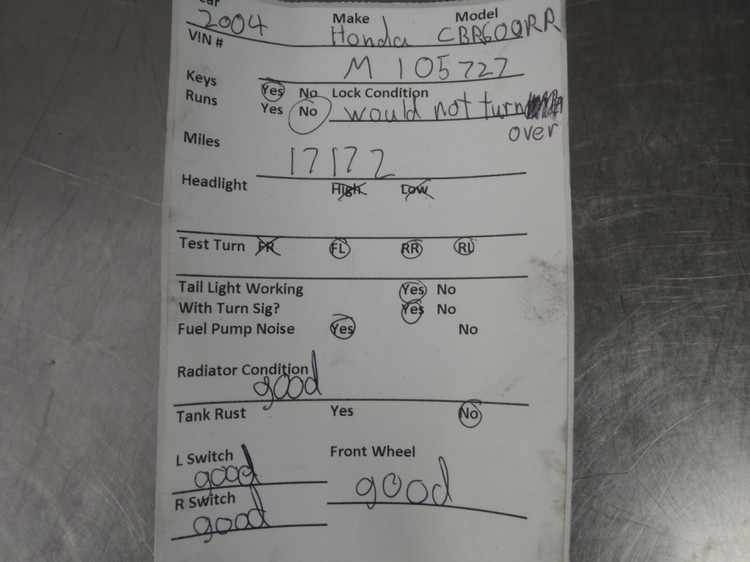 Make Model
2004 Honda CBR600RR
VIN # M 105727
Keys Yes No Lock Condition
Runs Yes No would not turn
over
Miles 17172
Headlight High Low
Test Turn FR FL RR RL
Tail Light Working Yes No
With Turn Sig? Yes No
Fuel Pump Noise Yes No
Radiator Condition
good
Tank Rust Yes No
L Switch Front Wheel
good good
R Switch
good